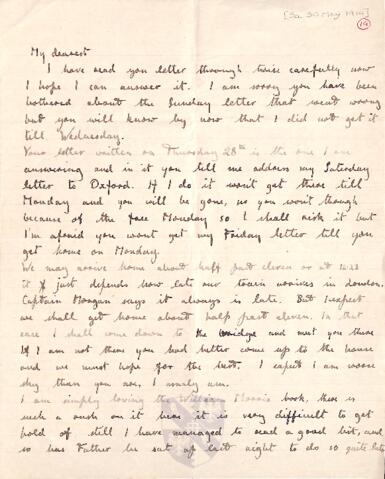 [Sa. 30 May 1914]
(19)
My dearest
I have read you letter through twice carefully now
I hope I can answer it. I am sorry you have been
bothered about the Sunday letter that went wrong
but you will know by now that I did not get it
till Wednesday.
Your letter written on Thursday 28th is the one I am
answering and in it you tell me address my Saturday
letter to Oxford. If I do it won't get there till
Monday and you will be gone, no you won't though
because of the fare Monday so I shall risk it but
I'm afraid you wont get my Friday letter till you
get home on Monday.
We may arrive home about half past eleven or at 12.23
it just depends how late our train arrives in London.
Captain Morgan says it always is late. But I expect
we shall get home about half past eleven. In that
case I shall come down to the bridge and meet you there
If I am not there you had better come up to the house
and we must hope for the best. I expect I am more
shy than you are, I usually am.
I am simply loving the William Morris book, there is
such a rush on it here it is very difficult to get
hold of still I have managed to read a good bit, and
so has Father he sat up last night to do so quite late